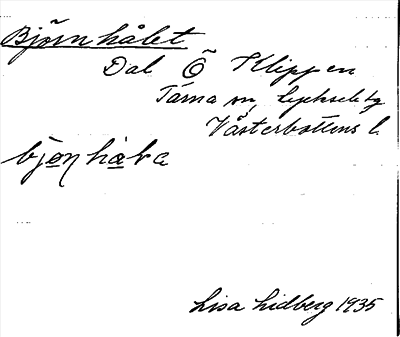 Björnhålet
Dal Ö Klippen
Tärna sn, Lycksele tg
Västerbottens l.
bjønhåka
Lisa Lidberg 1935